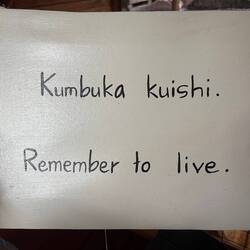 Kumbuka kuishi.
Remember to live.